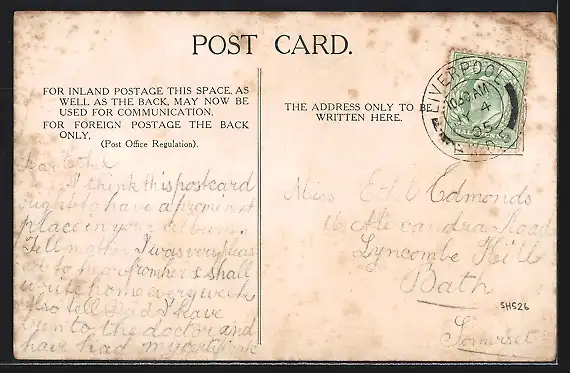 POST CARD.
FOR INLAND POSTAGE THIS SPACE, AS
WELL AS THE BACK, MAY NOW BE
USED FOR COMMUNICATION.
FOR FOREIGN POSTAGE THE BACK
ONLY.
(Post Office Regulation).
THE ADDRESS ONLY TO BE
WRITTEN HERE.
LIVERPOOL
10.30 AM
MY 4
05
Dear Ethel
I think this postcard
ought to have a prominent
place in your Album.
Tell mother I was very pleas
ed to hear from her & shall
write home every week
also tell Dad I have
been to the doctor and
have had my
Miss Ethel Edmonds
16 Alexandra Road
Lyncombe Hill
Bath
Somerset
SH526